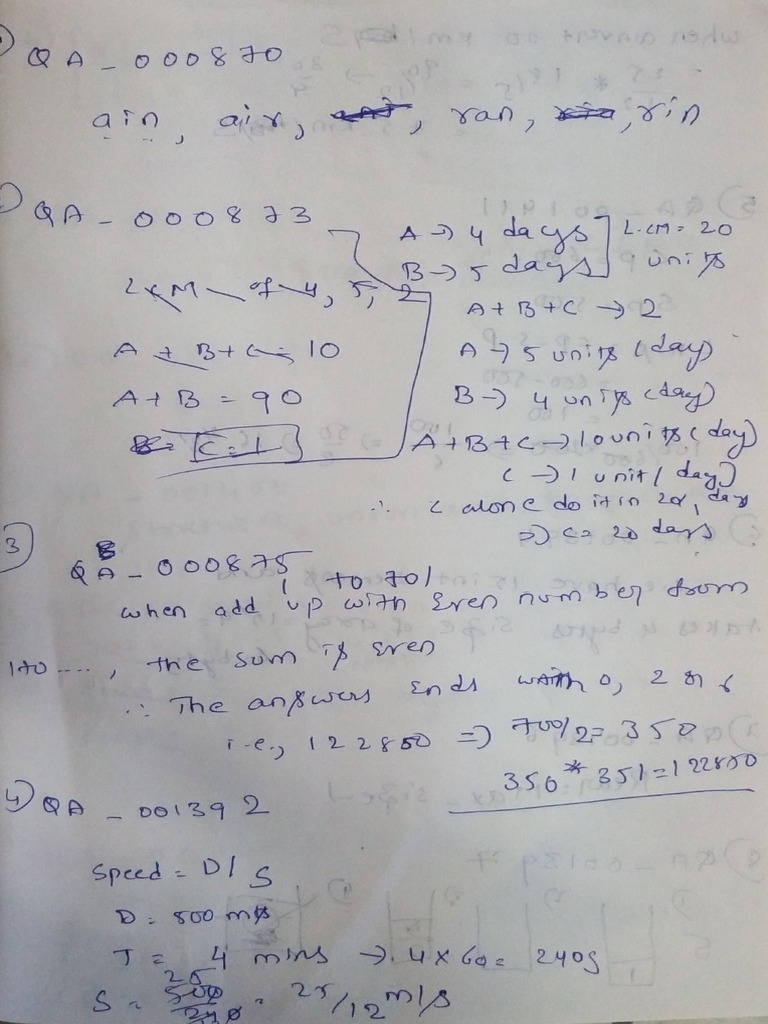 QA - 000870
ain, air, ran, rin
QA - 000873
LCM of 4, 5, 2
A + B + C = 10
A + B = 90
C = 1
A → 4 days
B → 5 days
L.CM = 20
units
A + B + C → 2
A → 5 units (day)
B → 4 units (day)
A + B + C → 10 units (day)
C → 1 unit (day)
∴ C alone do it in 20, days
⇒ C = 20 days
3) QB - 000875
to 701
when add up with even number from
1 to ...., the sum is even
∴ The answers ends with 0, 2 or 6
i.e., 122850 ⇒ 700/2 = 350
350 * 351 = 122850
4) QA - 001392
Speed = D/S
D = 500 m
T = 4 mins → 4 x 60 = 240s
S = 500/240 = 25/12 m/s